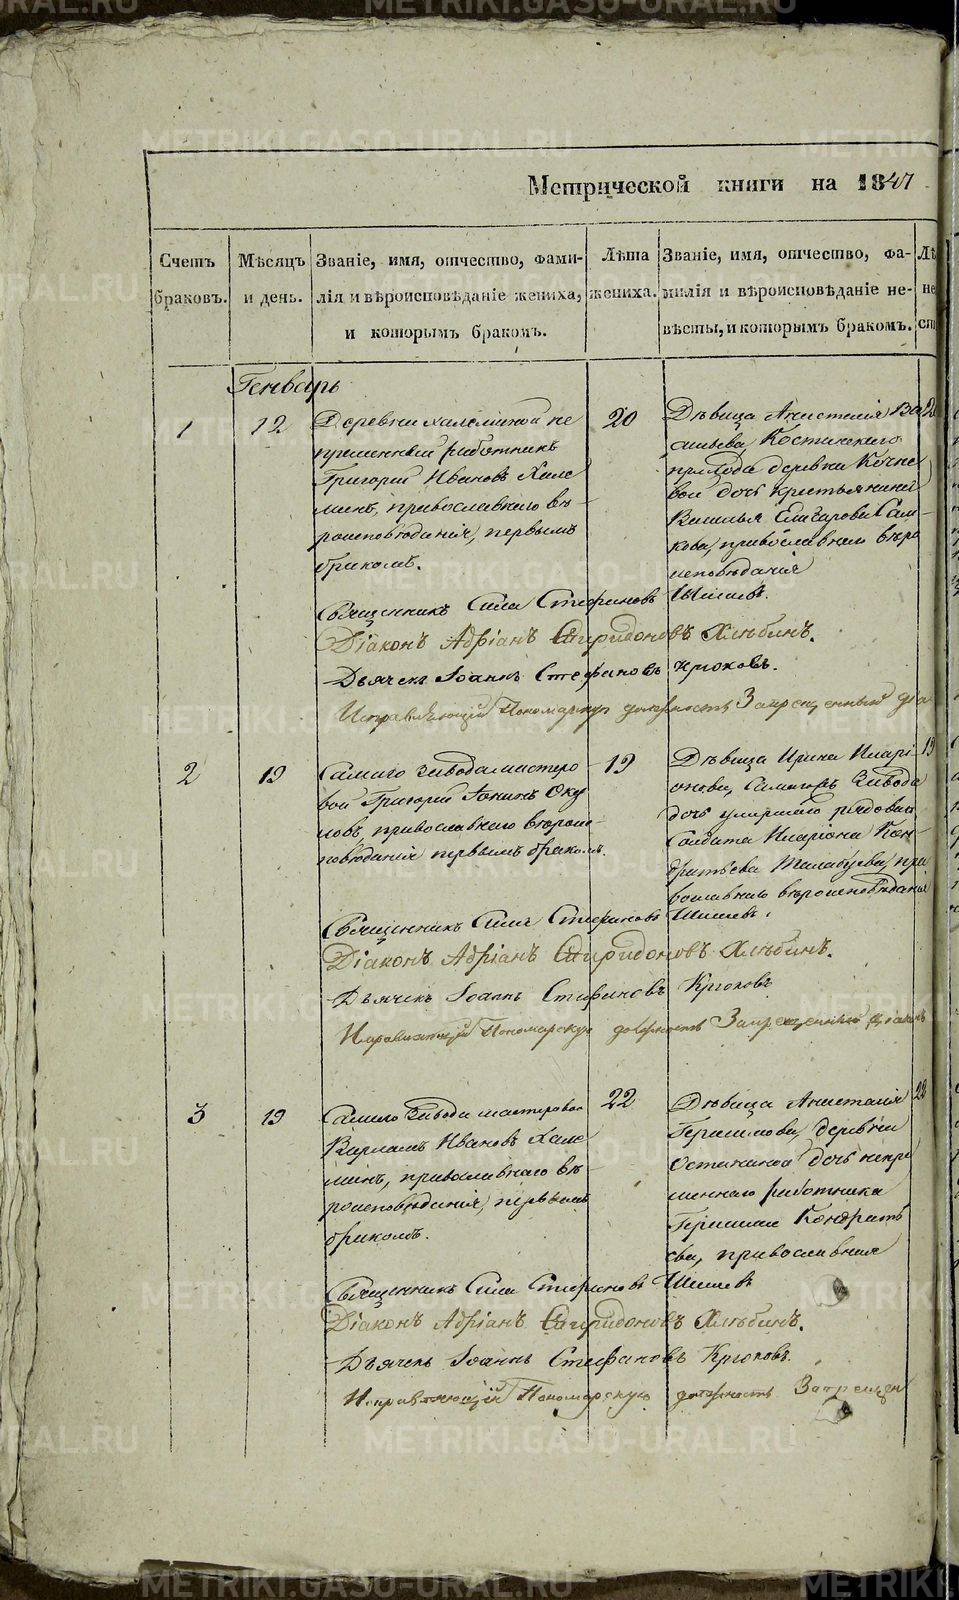 METRIKI.GASO-URAL.RU
Метрической книги на 1847
Счетъ браковъ.
Мѣсяцъ и день.
Званіе, имя, отчество, фами-
лія и вѣроисповѣданіе жениха,
и которымъ бракомъ.
Лѣта
жениха.
Званіе, имя, отчество, фа-
милія и вѣроисповѣданіе не-
вѣсты, и которымъ бракомъ.
Лѣ
не
ст
Генварь
1
12
Деревни
работникъ
Григорій Ивановъ Хале
минъ, православнаго вѣ
роисповѣданія, первымъ
бракомъ.
20
Дѣвица Анастасія Ва
сильева, Костинскаго
прихода деревни
вой дочь крестьянина
Василья
кова, православнаго вѣро
исповѣданія
Священникъ Сила Стефановъ Шишевъ.
Діаконъ Адріанъ Спиридоновъ Хлѣбинъ.
Дьячекъ Іоаннъ Стефановъ Крюковъ.
Исправляющій Пономарскую должность Запрещенный діа
2
19
Самаго завода мастеро
вой Григорій Оку
ловъ, православнаго вѣроис
повѣданія первымъ бракомъ.
19
Дѣвица Ирина Иларі
онова, Самаго завода
дочь умершаго рядоваго
Солдата Иларіона Кон
дратьева пра
вославнаго вѣроисповѣданія
19
Священникъ Сила Стефановъ Шишевъ.
Діаконъ Адріанъ Спиридоновъ Хлѣбинъ.
Дьячекъ Іоаннъ Стефановъ Крюковъ
Исправляющій Пономарскую должность Запрещенный діаконъ
3
19
Самаго завода мастеровой
Варламъ Ивановъ Хале
минъ, православнаго вѣ
роисповѣданія, первымъ
бракомъ.
22
Дѣвица Анастасія
Герасимова, деревни
Останиной дочь непре
меннаго работника
Герасима Кондрать
ева, православная
22
Священникъ Сила Стефановъ Шишевъ
Діаконъ Адріанъ Спиридоновъ Хлѣбинъ.
Дьячекъ Іоаннъ Стефановъ Крюковъ.
Исправляющій Пономарскую должность Запрещен